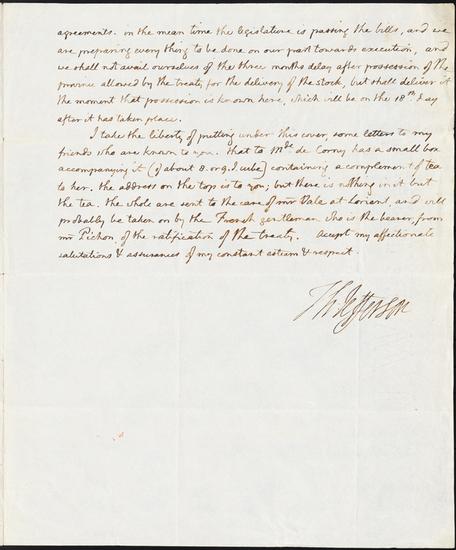 agreements. in the mean time the legislature is passing the bills, and we
are preparing every thing to be done on our part towards execution, and
we shall not avail ourselves of the three months delay after possession of the
province allowed by the treaty for the delivery of the stock, but shall deliver it
the moment that possession is known here, which will be on the 18th. day
after it has taken place.
I take the liberty of putting under this cover some letters to my
friends who are known to you. that to Mde. de Corny has a small box
accompanying it (of about 8. or 9. I. cube) containing a complement of tea
to her. the address on the top is to you; but there is nothing in it but
the tea. the whole are sent to the care of mr Vale at Lorient, and will
probably be taken on by the French gentleman who is the bearer from
mr Pichon of the ratification of the treaty. Accept my affectionate
salutations & assurances of my constant esteem & respect.
Th: Jefferson